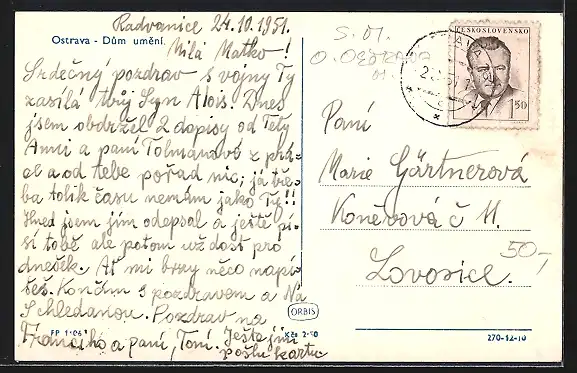 Radvanice 24.10.1951.
Ostrava - Dům umění.
Milá Matko!
Srdečný pozdrav s vojny Ty
zasílá tvůj Syn Alois. Dnes
jsem obdržel 2 dopisy od Tety
Anni a paní Tolmanové z
a od tebe pořad nic; já tře-
ba tolik času nemám jako Ty!!
Hned jsem jim odepsal a ještě pí-
ši tobě ale potom už dost pro
dnešek. Ať mi brzy něco napí-
šeš. Končím s pozdravem a Na
Schledanou. Pozdrav na
a paní, Toní. Ještě jim
pošlu kartu
FP 1106
Kčs 2·50
ORBIS
S. M.
O. OSTRAVA
ČESKOSLOVENSKO
1.50
Paní
Marie Gärtnerová
Koněvová č 11.
Lovosice.
50,-
270-12-10